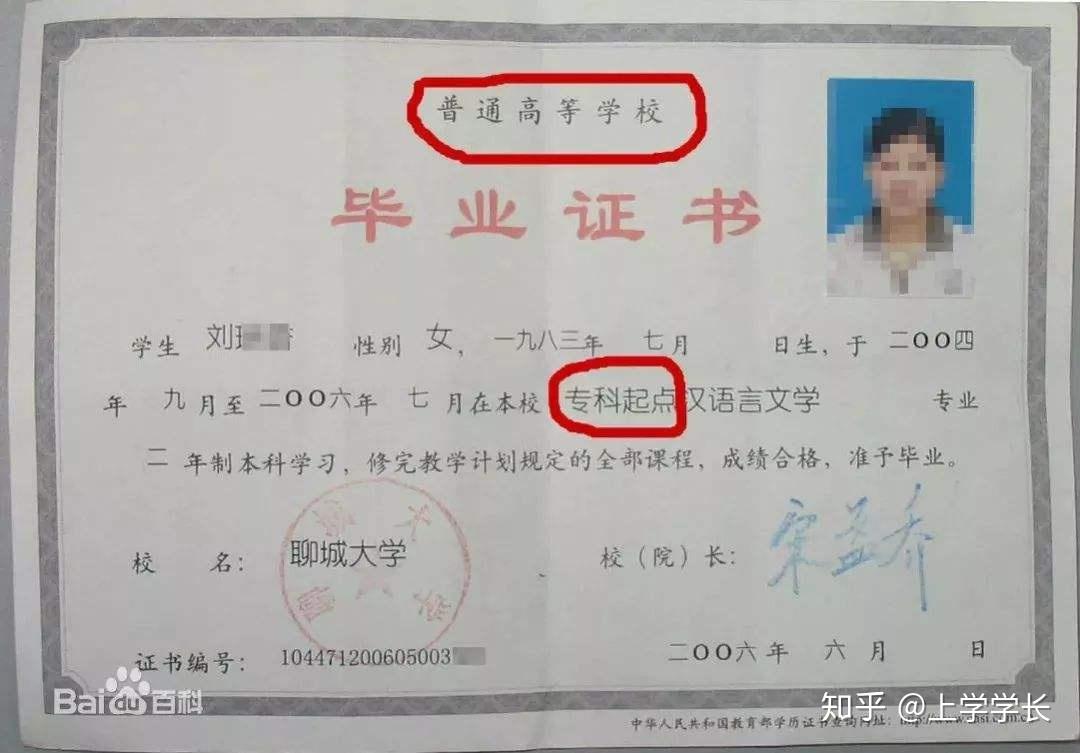 普通高等学校
毕业证书
学生 刘 性别 女，一九八三年 七月 日生，于 二〇〇四
年 九月至 二〇〇六年 七月在本校 专科起点汉语言文学 专业
二 年制本科学习，修完教学计划规定的全部课程，成绩合格，准予毕业。
校 名： 聊城大学 校（院）长： 宋益乔
证书编号： 104471200605003 二〇〇六年 六月 日
Baidu百科
知乎 @上学学长
中华人民共和国教育部学历证书查询网址：